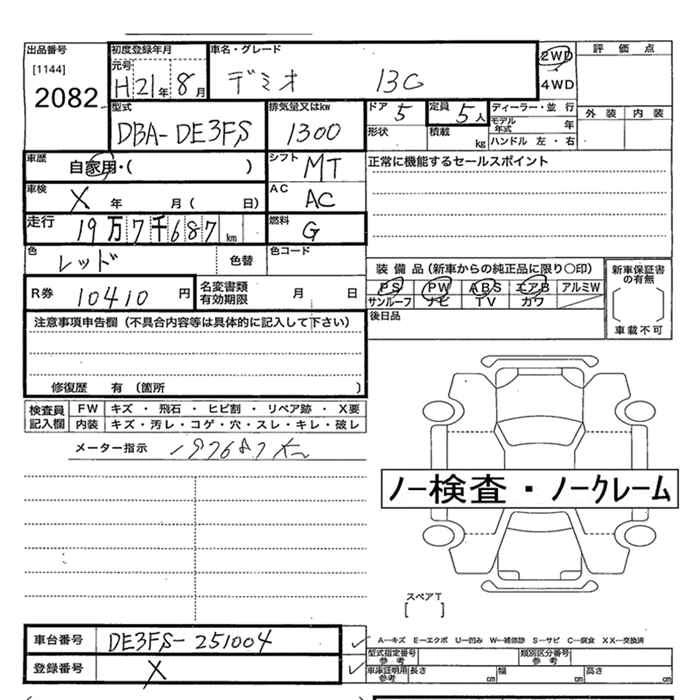 出品番号 初度登録年月 車名・グレード 評価点
[1144] 元号 2WD
2082 H21年8月 デミオ 13C 4WD
型式 排気量又はkw ドア 定員 ディーラー・並行 外装 内装
DBA-DE3FS 1300 5 5人 モデル年式 年
形状 積載 kg ハンドル 左・右
車歴 自家用・( ) シフト MT 正常に機能するセールスポイント
車検 X 年 月 ( 日) AC AC
走行 19万7千687km 燃料 G
色 レッド 色替 色コード
装備品(新車からの純正品に限り〇印) 新車保証書の有無
R券 10410円 名変書類有効期限 月 日 PS PW ABS エアB アルミW
サンルーフ ナビ TV カワ
注意事項申告欄(不具合内容等は具体的に記入して下さい) 後日品 車載不可
修復歴 有(箇所 )
検査員記入欄 FW キズ・飛石・ヒビ割・リペア跡・X要
内装 キズ・汚レ・コゲ・穴・スレ・キレ・破レ
メーター指示 197687K
ノー検査・ノークレーム
スペアT
[ ]
車台番号 DE3FS-251004 A-キズ E-エクボ U-凹み W-補修跡 S-サビ C-腐食 XX-交換済
型式指定番号参考 類別区分番号参考
登録番号 X 車庫証明用参考 長さ cm 幅 cm 高さ cm